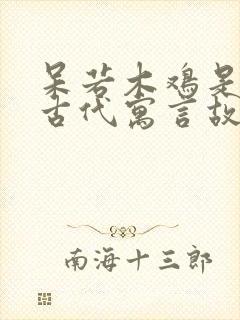 呆若木鸡是
古代寓言故
南海十三郎